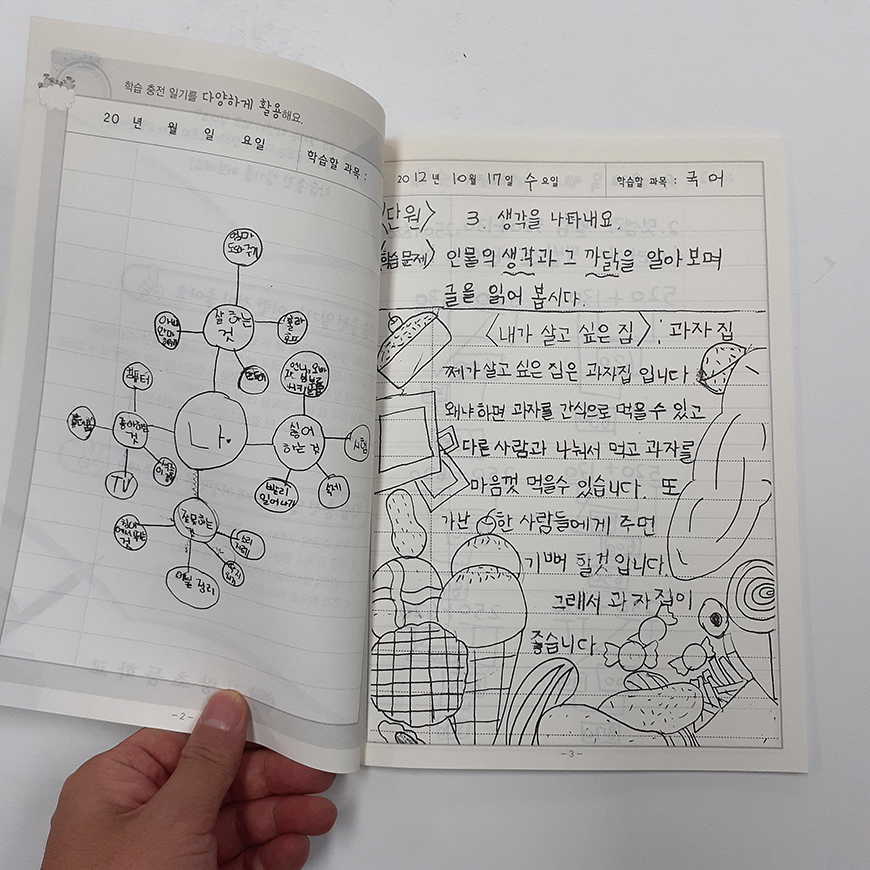 학습 충전 일기를 다양하게 활용해요.
20 년 월 일 요일 학습할 과목 :
엄마 도와주기
잘하는 것
아빠 안마
훌라
좋아하는 것
컴퓨터
TV
나.
싫어하는 것
시험
숙제
빨리 일어나기
잘못하는 것
이불 정리
- 2 -
2012년 10월 17일 수요일 학습할 과목 : 국어
단원> 3. 생각을 나타내요.
학습문제> 인물의 생각과 그 까닭을 알아보며
글을 읽어 봅시다.
<내가 살고 싶은 집>: 과자집
제가 살고 싶은 집은 과자집 입니다
왜냐하면 과자를 간식으로 먹을 수 있고
다른 사람과 나눠서 먹고 과자를
마음껏 먹을수 있습니다. 또
가난한 사람들에게 주면
기뻐 할것 입니다.
그래서 과자집이
좋습니다
- 3 -